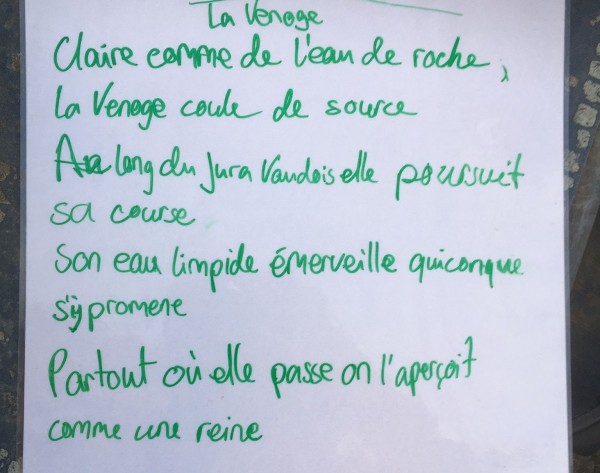 La Venoge
Claire comme de l'eau de roche,
la Venoge coule de source
Au long du Jura Vaudois elle poursuit
sa course
Son eau limpide émerveille quiconque
s'y promene
Partout où elle passe on l'aperçoit
comme une reine